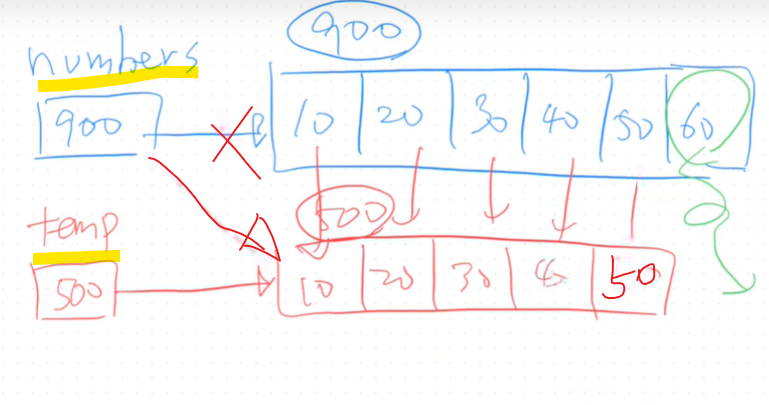 900
numbers
900 10 20 30 40 50 60
temp
500
500 10 20 30 40 50